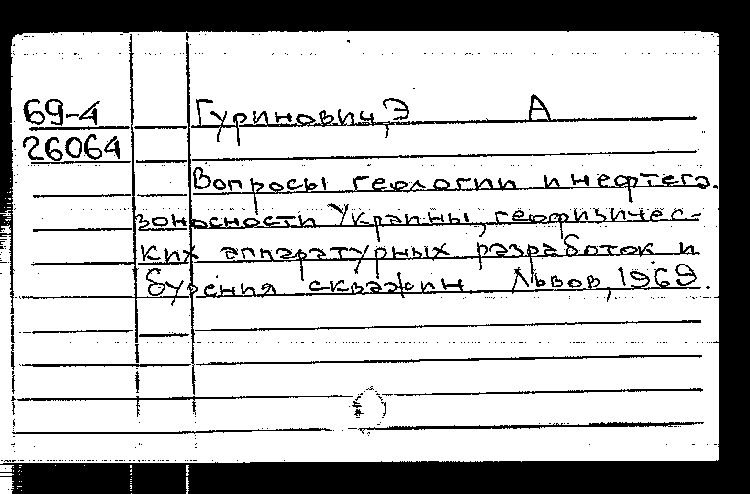 69-4 Гуринович, Э А
26064
Вопросы геологии и нефтега-
зоносности Украины, геофизичес-
ких аппаратурных разработок и
бурения скважин. Львов, 1969.